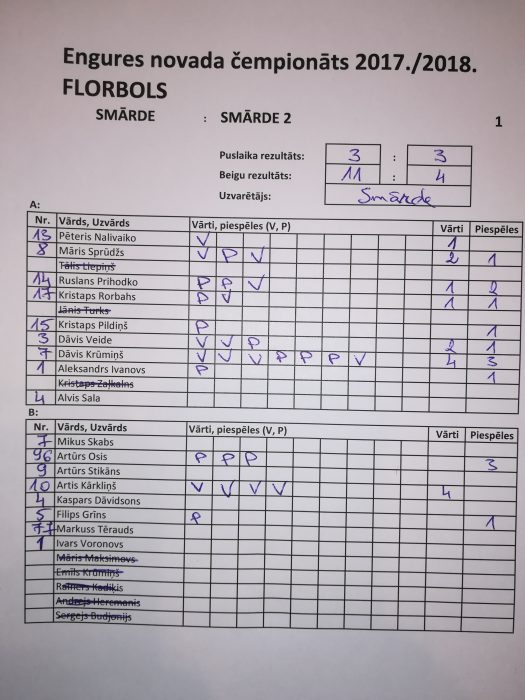 Engures novada čempionāts 2017./2018.
FLORBOLS
SMĀRDE : SMĀRDE 2 1
Puslaika rezultāts: 3 : 3
Beigu rezultāts: 11 : 4
Uzvarētājs: Smārde
A:
Nr. Vārds, Uzvārds Vārti, piespēles (V, P) Vārti Piespēles
13 Pēteris Nalivaiko V 1
8 Māris Sprūdžs V P V 2 1
Tālis Liepiņš
14 Ruslans Prihodko P P V 1 2
17 Kristaps Rorbahs P V 1 1
Jānis Turks
15 Kristaps Pildiņš P 1
3 Dāvis Veide V V P 2 1
7 Dāvis Krūmiņš V V V P P P V 4 3
1 Aleksandrs Ivanovs P 1
Kristaps Zaļkalns
4 Alvis Sala
B:
Nr. Vārds, Uzvārds Vārti, piespēles (V, P) Vārti Piespēles
7 Mikus Skabs
96 Artūrs Osis P P P 3
9 Artūrs Stikāns
10 Artis Kārkliņš V V V V 4
4 Kaspars Dāvidsons
5 Filips Grīns P 1
77 Markuss Tērauds
1 Ivars Voronovs
Māris Maksimovs
Emīls Krūmiņš
Rainers Kadiķis
Andrejs Hercmanis
Sergejs Budjonijs